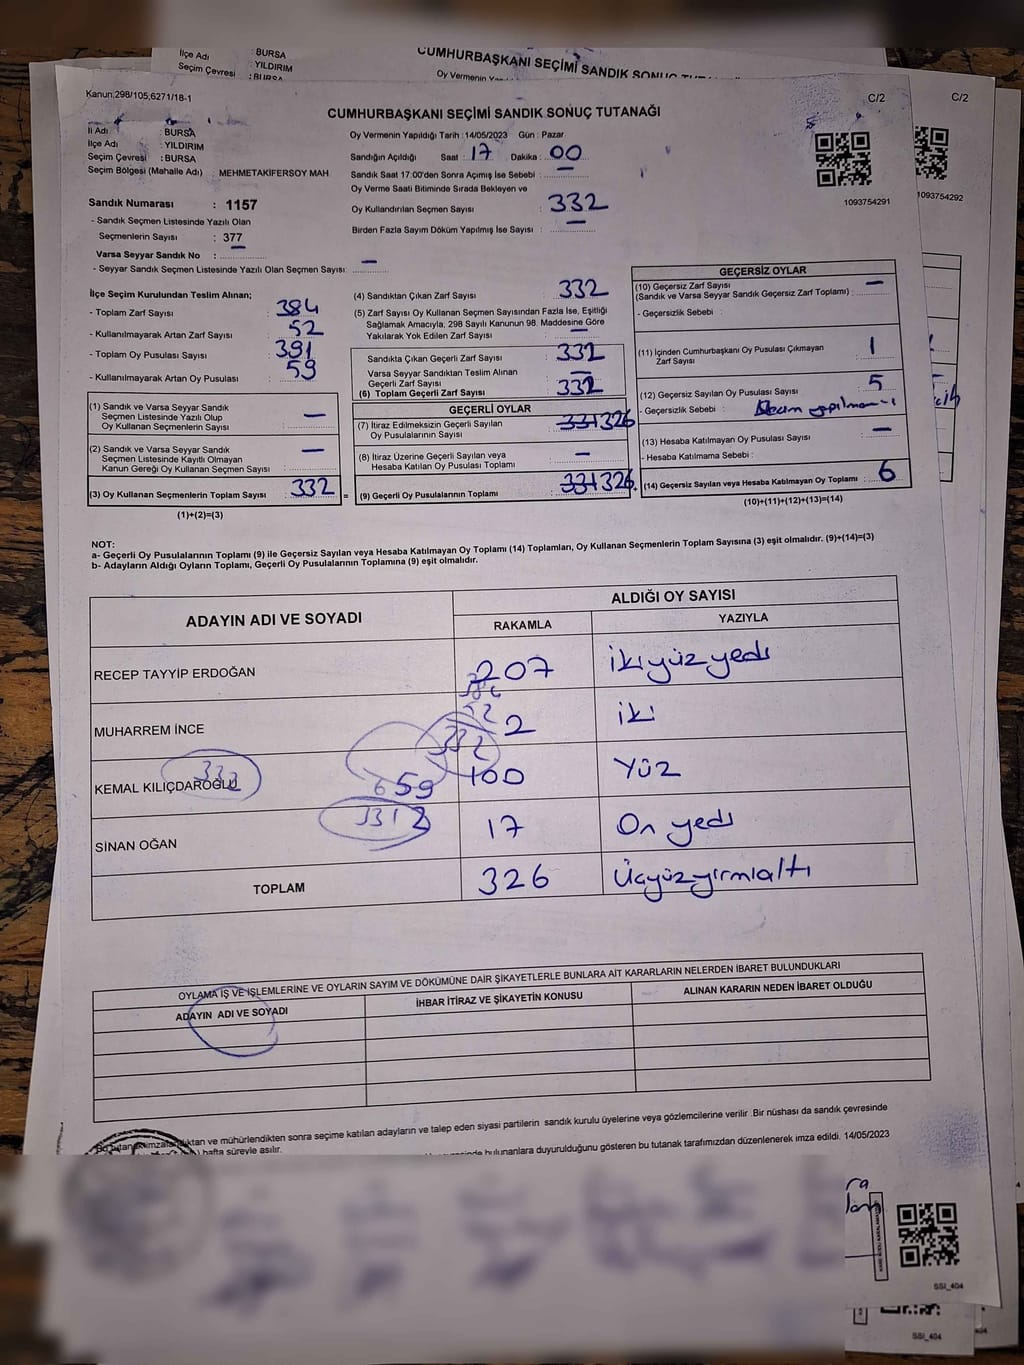 İlçe Adı : BURSA
Seçim Çevresi : YILDIRIM
: BURSA
CUMHURBAŞKANI SEÇİMİ SANDIK SONUÇ
Oy Vermenin
Kanun:298/105;6271/18-1
C/2
C/2
CUMHURBAŞKANI SEÇİMİ SANDIK SONUÇ TUTANAĞI
İl Adı : BURSA
İlçe Adı : YILDIRIM
Seçim Çevresi : BURSA
Seçim Bölgesi (Mahalle Adı) : MEHMETAKİFERSOY MAH
Oy Vermenin Yapıldığı Tarih : 14/05/2023 Gün : Pazar
Sandığın Açıldığı Saat : 17 Dakika : 00
Sandık Saat 17:00'den Sonra Açımış İse Sebebi : —
Oy Verme Saati Bitiminde Sırada Bekleyen ve
Oy Kullandırılan Seçmen Sayısı : 332
Birden Fazla Sayım Döküm Yapılmış İse Sayısı : —
1093754291
1093754292
Sandık Numarası : 1157
- Sandık Seçmen Listesinde Yazılı Olan
Seçmenlerin Sayısı : 377
Varsa Seyyar Sandık No : —
- Seyyar Sandık Seçmen Listesinde Yazılı Olan Seçmen Sayısı: —
İlçe Seçim Kurulundan Teslim Alınan;
- Toplam Zarf Sayısı : 384
- Kullanılmayarak Artan Zarf Sayısı : 52
- Toplam Oy Pusulası Sayısı : 391
- Kullanılmayarak Artan Oy Pusulası : 59
(1) Sandık ve Varsa Seyyar Sandık
Seçmen Listesinde Yazılı Olup
Oy Kullanan Seçmenlerin Sayısı : —
(2) Sandık ve Varsa Seyyar Sandık
Seçmen Listesinde Kayıtlı Olmayan
Kanun Gereği Oy Kullanan Seçmen Sayısı : —
(3) Oy Kullanan Seçmenlerin Toplam Sayısı : 332 =
(1)+(2)=(3)
(4) Sandıktan Çıkan Zarf Sayısı : 332
(5) Zarf Sayısı Oy Kullanan Seçmen Sayısından Fazla İse, Eşitliği
Sağlamak Amacıyla, 298 Sayılı Kanunun 98. Maddesine Göre
Yakılarak Yok Edilen Zarf Sayısı : —
Sandıkta Çıkan Geçerli Zarf Sayısı : 332
Varsa Seyyar Sandıktan Teslim Alınan
Geçerli Zarf Sayısı : —
(6) Toplam Geçerli Zarf Sayısı : 332
GEÇERLİ OYLAR
(7) İtiraz Edilmeksizin Geçerli Sayılan
Oy Pusulalarının Sayısı : 331 326
(8) İtiraz Üzerine Geçerli Sayılan veya
Hesaba Katılan Oy Pusulası Toplamı : —
(9) Geçerli Oy Pusulalarının Toplamı : 331 326 +
GEÇERSİZ OYLAR
(10) Geçersiz Zarf Sayısı
(Sandık ve Varsa Seyyar Sandık Geçersiz Zarf Toplamı) : —
- Geçersizlik Sebebi :
(11) İçinden Cumhurbaşkanı Oy Pusulası Çıkmayan
Zarf Sayısı : 1
(12) Geçersiz Sayılan Oy Pusulası Sayısı : 5
- Geçersizlik Sebebi :
(13) Hesaba Katılmayan Oy Pusulası Sayısı : —
- Hesaba Katılmama Sebebi :
(14) Geçersiz Sayılan veya Hesaba Katılmayan Oy Toplamı : 6
(10)+(11)+(12)+(13)=(14)
NOT:
a- Geçerli Oy Pusulalarının Toplamı (9) ile Geçersiz Sayılan veya Hesaba Katılmayan Oy Toplamı (14) Toplamları, Oy Kullanan Seçmenlerin Toplam Sayısına (3) eşit olmalıdır. (9)+(14)=(3)
b- Adayların Aldığı Oyların Toplamı, Geçerli Oy Pusulalarının Toplamına (9) eşit olmalıdır.
ADAYIN ADI VE SOYADI
ALDIĞI OY SAYISI
RAKAMLA YAZIYLA
RECEP TAYYİP ERDOĞAN 207 İkiyüz yedi
MUHARREM İNCE 2 iki
52
332
KEMAL KILIÇDAROĞLU 100 Yüz
332
659
SİNAN OĞAN 17 On yedi
TOPLAM 326 Üçyüzyirmialtı
OYLAMA İŞ VE İŞLEMLERİNE VE OYLARIN SAYIM VE DÖKÜMÜNE DAİR ŞİKAYETLERLE BUNLARA AİT KARARLARIN NELERDEN İBARET BULUNDUKLARI
ADAYIN ADI VE SOYADI İHBAR İTİRAZ VE ŞİKAYETİN KONUSU ALINAN KARARIN NEDEN İBARET OLDUĞU
ve mühürlendikten sonra seçime katılan adayların ve talep eden siyasi partilerin sandık kurulu üyelerine veya gözlemcilerine verilir .Bir nüshası da sandık çevresinde
hafta süreyle asılır.
bulunanlara duyurulduğunu gösteren bu tutanak tarafımızdan düzenlenerek imza edildi. 14/05/2023
SSI_404
SSI_404